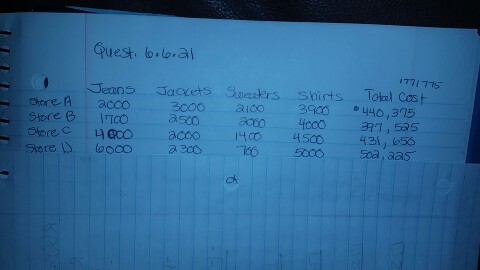 Quest. 6.6.21
1771775
Jeans Jackets Sweaters Shirts Total Cost
Store A 2000 3000 2100 3900 440,375
Store B 1700 2500 2000 4000 397,525
Store C 4000 2000 1400 4500 431,650
Store D 6000 2300 700 5000 502,225